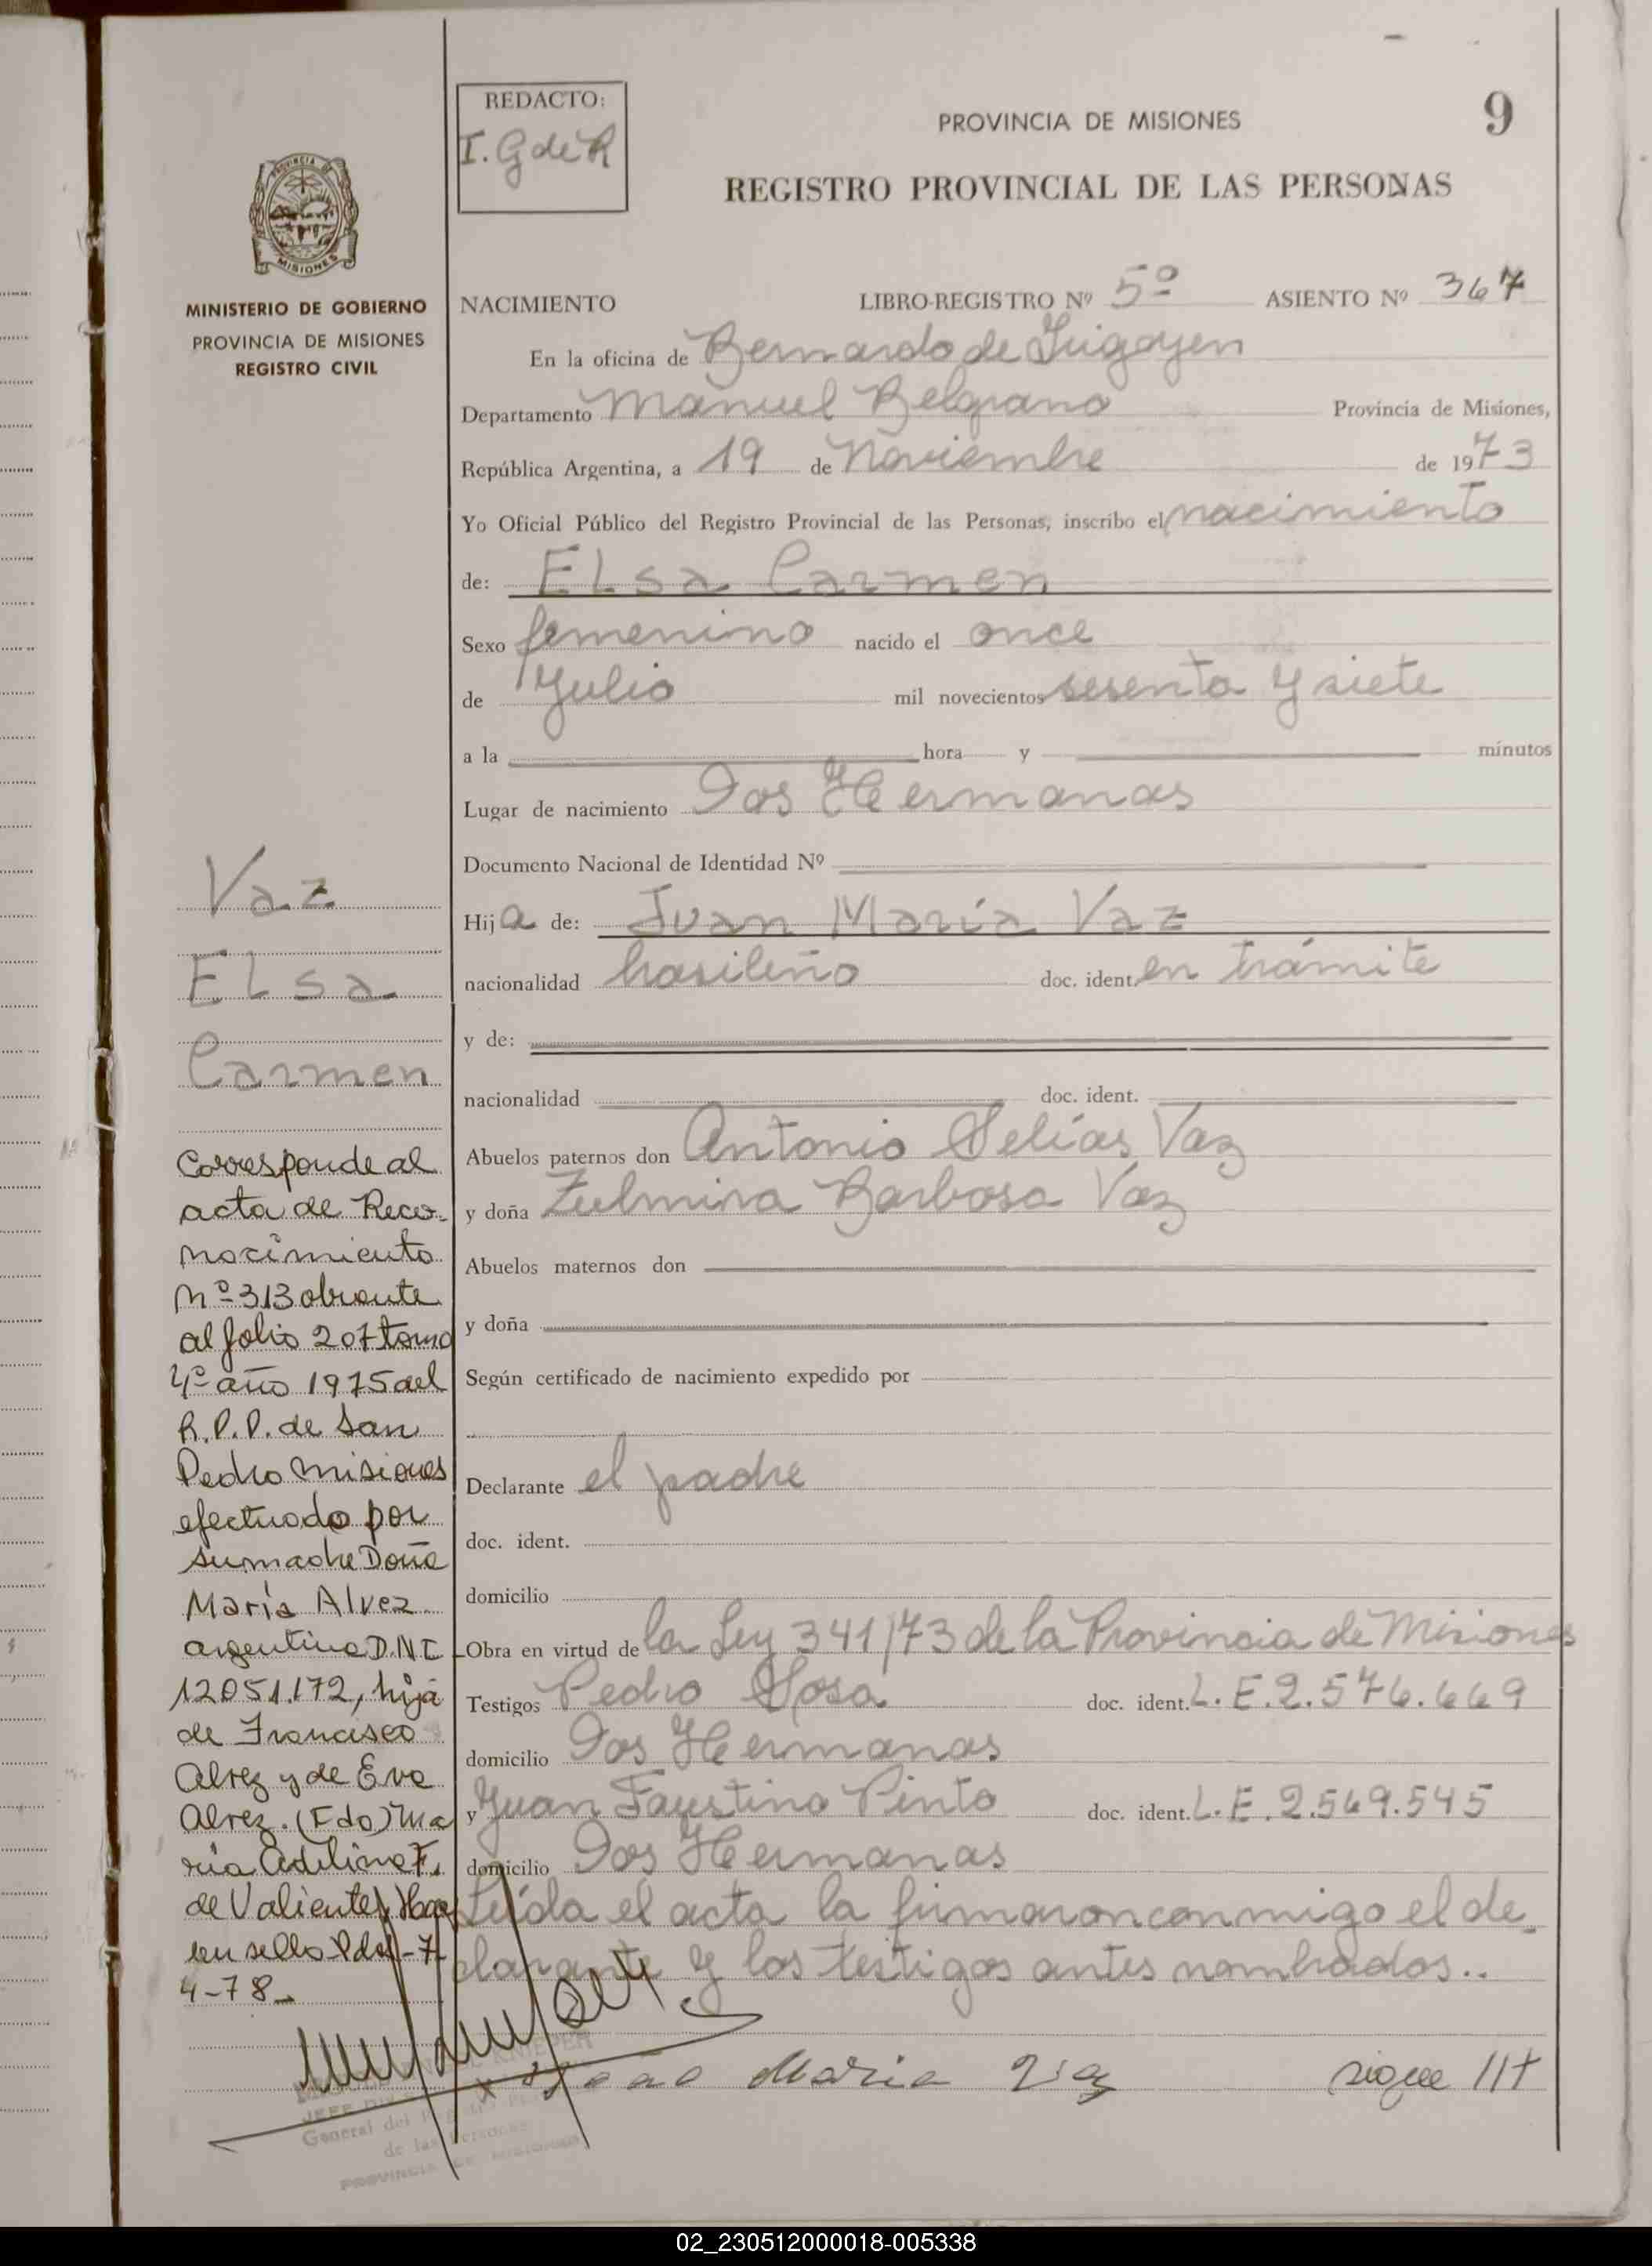 REDACTO:
I. G de R
PROVINCIA DE MISIONES
9
REGISTRO PROVINCIAL DE LAS PERSONAS
PROVINCIA DE
MISIONES
MINISTERIO DE GOBIERNO
PROVINCIA DE MISIONES
REGISTRO CIVIL
NACIMIENTO LIBRO-REGISTRO Nº 5º ASIENTO Nº 367
En la oficina de Bernardo de Irigoyen
Departamento Manuel Belgrano Provincia de Misiones,
República Argentina, a 19 de Noviembre de 1973
Yo Oficial Público del Registro Provincial de las Personas, inscribo el nacimiento
de: Elsa Carmen
Sexo femenino nacido el once
de Julio mil novecientos sesenta y siete
a la hora y minutos
Lugar de nacimiento Dos Hermanas
Documento Nacional de Identidad Nº
Hija de: Juan María Vaz
nacionalidad brasileño doc. ident. en trámite
y de:
nacionalidad doc. ident.
Abuelos paternos don Antonio Selías Vaz
y doña Zulmira Barbosa Vaz
Abuelos maternos don
y doña
Según certificado de nacimiento expedido por
Declarante el padre
doc. ident.
domicilio
Obra en virtud de la Ley 341/73 de la Provincia de Misiones
Testigos Pedro Sosa doc. ident. L. E. 2.576.669
domicilio Dos Hermanas
y Juan Faustino Pinto doc. ident. L. E. 2.569.545
domicilio Dos Hermanas
Leída el acta la firmaron conmigo el de-
clarante y los testigos antes nombrados..
Maria Vaz sigue ///t
Vaz
Elsa
Carmen
Corresponde al
acta de Reco-
nocimiento
Nº 313 obrante
al folio 207 tomo
4º año 1975 del
R.P.P. de San
Pedro Misiones
efectuado por
su madre Doña
María Alvez
argentina D.N.I.
12051.172, hija
de Francisco
Alvez y de Eva
Alvez. (Fdo) Ma
ria Adelina F.
de Valiente, Hay
un sello Pdas-7-
4-78-
JEFE
General del
de las Personas
PROVINCIA DE MISIONES
02_230512000018-005338